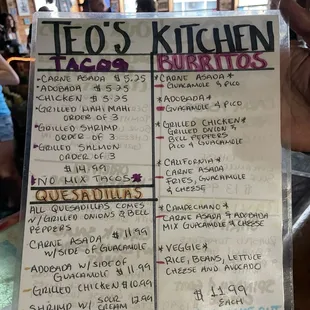 TEO'S KITCHEN
TACOS
• CARNE ASADA $5.25
• ADOBADA $5.25
• CHICKEN $5.25
• GRILLED MAHI MAHI
ORDER OF 3
• GRILLED SHRIMP
ORDER OF 3
• GRILLED SALMON
ORDER OF 3
$14.99
NO MIX TACOS
QUESADILLAS
ALL QUESADILLAS COMES
W/GRILLED ONIONS & BELL
PEPPERS
CARNE ASADA $11.99
W/SIDE OF GUACAMOLE
ADOBADA W/SIDE OF
GUACAMOLE $11.99
GRILLED CHICKEN $10.99
SHRIMP W/ SOUR CREAM 12.99
BURRITOS
*CARNE ASADA*
GUACAMOLE & PICO
*ADOBADA*
GUACAMOLE & PICO
*GRILLED CHICKEN*
GRILLED ONION &
BELL PEPPERS
PICO & GUACAMOLE
*CALIFORNIA*
CARNE ASADA
FRIES, GUACAMOLE
& CHEESE
*CAMPECHANO*
CARNE ASADA & ADOBADA
MIX GUACAMOLE & PICO
*VEGGIE*
RICE, BEANS, LETTUCE
CHEESE AND AVOCADO
$11.99
EACH